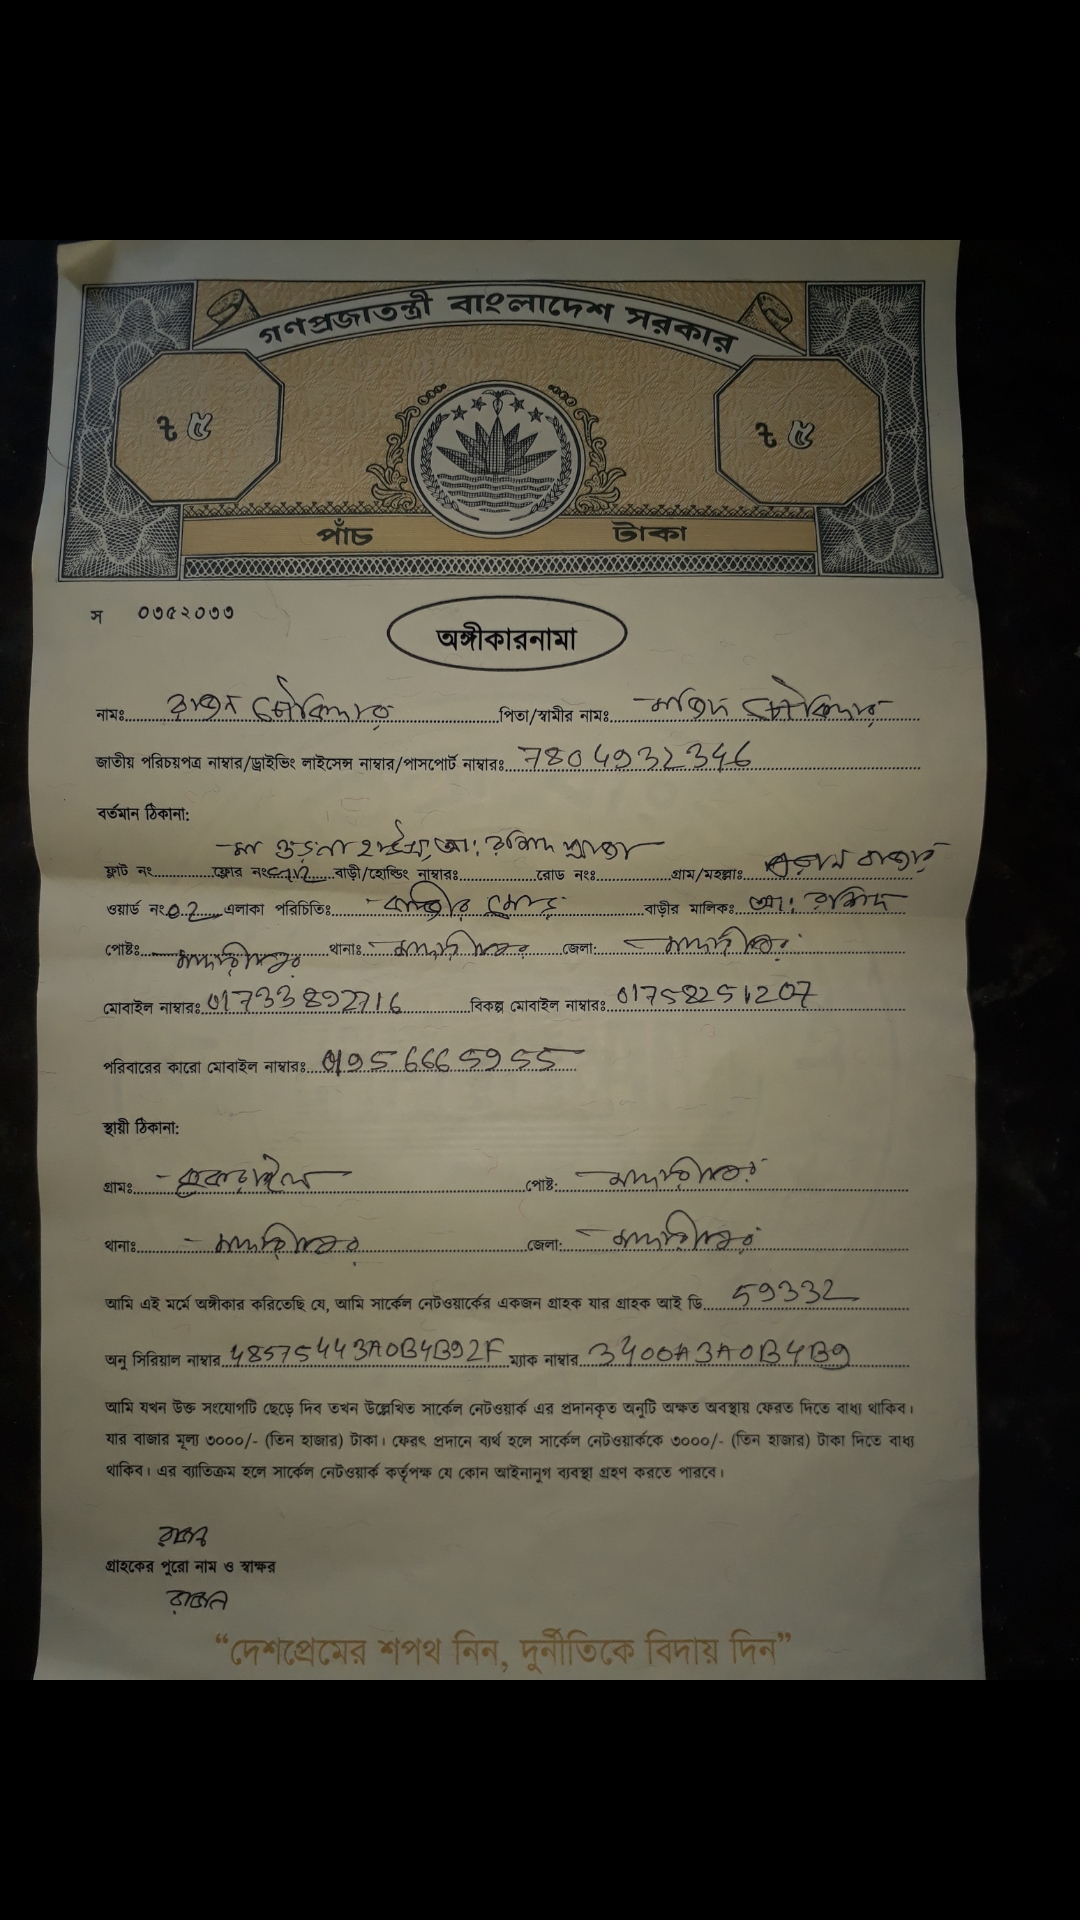 গণপ্রজাতন্ত্রী বাংলাদেশ সরকার
৳ ৫ ৳ ৫
পাঁচ টাকা
স ০৩৫২০৩৩
অঙ্গীকারনামা
নামঃ চৌকিদার পিতা/স্বামীর নামঃ মজিদ চৌকিদার
জাতীয় পরিচয়পত্র নাম্বার/ড্রাইভিং লাইসেন্স নাম্বার/পাসপোর্ট নাম্বারঃ 7804932346
বর্তমান ঠিকানা:
আ: রশিদ
ফ্লাট নং ফ্লোর নং বাড়ী/হোল্ডিং নাম্বারঃ রোড নংঃ গ্রাম/মহল্লাঃ বাজার
ওয়ার্ড নং 02 এলাকা পরিচিতিঃ কাজীর মোড় বাড়ীর মালিকঃ আ: রশিদ
পোষ্টঃ মাদারীপুর থানাঃ মাদারীপুর জেলা: মাদারীপুর
মোবাইল নাম্বারঃ 01733892716 বিকল্প মোবাইল নাম্বারঃ 01758251207
পরিবারের কারো মোবাইল নাম্বারঃ 01956665955
স্থায়ী ঠিকানা:
গ্রামঃ পোষ্ট: মাদারীপুর
থানাঃ মাদারীপুর জেলা: মাদারীপুর
আমি এই মর্মে অঙ্গীকার করিতেছি যে, আমি সার্কেল নেটওয়ার্কের একজন গ্রাহক যার গ্রাহক আই ডি 59332
অনু সিরিয়াল নাম্বার 48575443A0B4B92F ম্যাক নাম্বার 3400A3A0B4B9
আমি যখন উক্ত সংযোগটি ছেড়ে দিব তখন উল্লেখিত সার্কেল নেটওয়ার্ক এর প্রদানকৃত অনুটি অক্ষত অবস্থায় ফেরত দিতে বাধ্য থাকিব।
যার বাজার মূল্য ৩০০০/- (তিন হাজার) টাকা। ফেরৎ প্রদানে ব্যর্থ হলে সার্কেল নেটওয়ার্ককে ৩০০০/- (তিন হাজার) টাকা দিতে বাধ্য
থাকিব। এর ব্যাতিক্রম হলে সার্কেল নেটওয়ার্ক কর্তৃপক্ষ যে কোন আইনানুগ ব্যবস্থা গ্রহণ করতে পারবে।
রাজন
গ্রাহকের পুরো নাম ও স্বাক্ষর
রাজন
“দেশপ্রেমের শপথ নিন, দুর্নীতিকে বিদায় দিন”